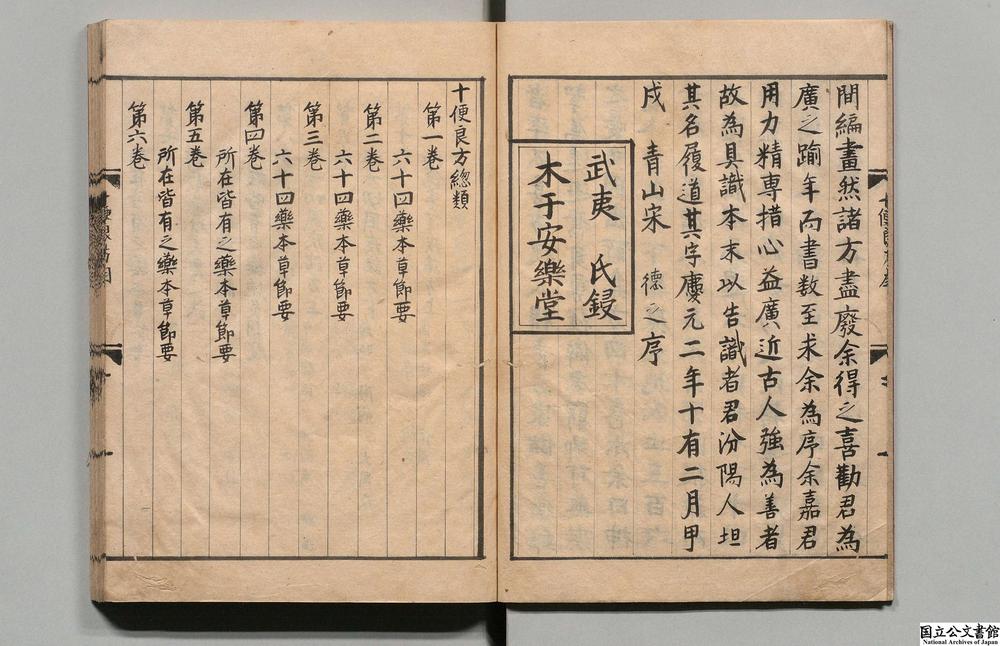 間編畫然諸方盡廢余得之喜勸君為
廣之踰年而書数至求余為序余嘉君
用力精專措心益廣近古人強為善者
故為具識本末以告識者君汾陽人坦
其名履道其字慶元二年十有二月甲
戌 青山宋 德之序
武夷 氏鋟
木于安樂堂
十便良方總類
第一卷
六十四藥本草節要
第二卷
六十四藥本草節要
第三卷
六十四藥本草節要
第四卷
所在皆有之藥本草節要
第五卷
所在皆有之藥本草節要
第六卷
国立公文書館
National Archives of Japan